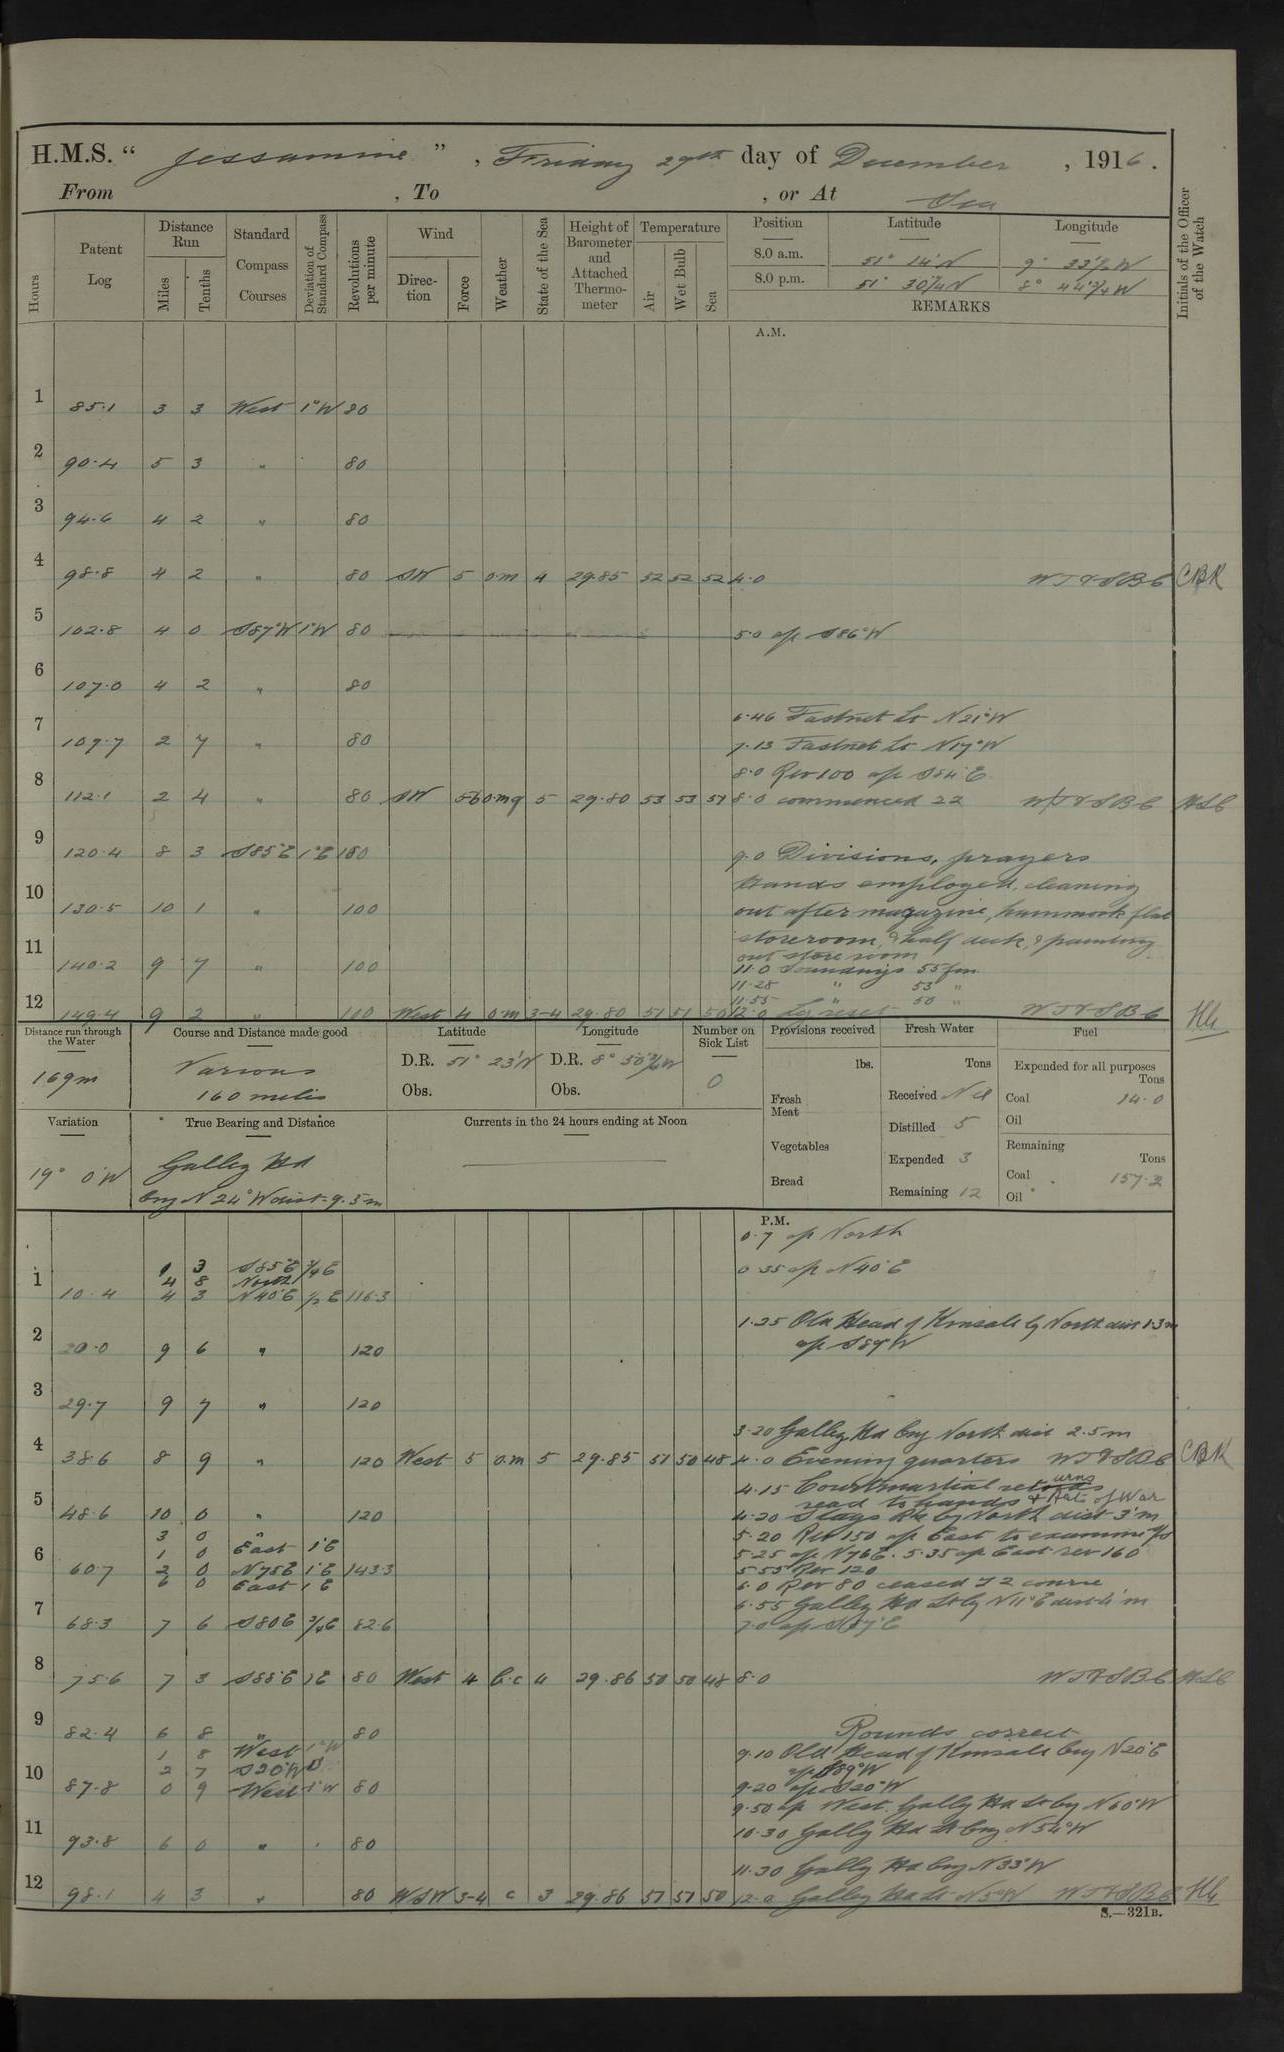 H.M.S. " Jessamine " , Friday 29th day of December , 1916 .
From , To , or At Sea
Hours
Patent Log
Distance Run
Miles
Tenths
Standard Compass Courses
Deviation of Standard Compass
Revolutions per minute
Wind
Direction
Force
Weather
State of the Sea
Height of Barometer and Attached Thermometer
Temperature
Air
Wet Bulb
Sea
Position Latitude Longitude
8.0 a.m. 51° 14' N 9° 33½ W
8.0 p.m. 51° 30¼ N 8° 44¾ W
REMARKS
Initials of the Officer of the Watch
A.M.
1 85.1 3 3 West 1°W 80
2 90.4 5 3 " 80
3 94.6 4 2 " 80
4 98.8 4 2 " 80 SW 5 o.m 4 29.85 52 52 52 4.0 W T & S B C CBK
5 102.8 4 0 S87°W 1°W 80 5.0 a/c S86°W
6 107.0 4 2 " 80
6.46 Fastnet Lt N21°W
7 109.7 2 7 " 80 7.13 Fastnet Lt N17°W
8.0 Rev 100 a/c S84°E
8 112.1 2 4 " 80 SW 5-6 o.m.q 5 29.80 53 53 51 8.0 commenced 22 W T & S B C
9 120.4 8 3 S85°E 1°E 100 9.0 Divisions, prayers
Hands employed, cleaning
10 130.5 10 1 " 100 out after magazine, hammock flat
storeroom, & half deck, & painting
out store room
11 140.2 9 7 " 100 11.0 Soundings 55 fm
11.28 " 53 "
11.55 " 50 "
12 149.4 9 2 " 100 West 4 o.m 3-4 29.80 51 51 50 12.0 Log reset W T & S B C
Distance run through the Water
169m
Course and Distance made good
Various
160 miles
Latitude
D.R. 51° 23' N
Obs.
Longitude
D.R. 8° 50¾ W
Obs.
Number on Sick List
0
Provisions received
lbs.
Fresh Meat
Vegetables
Bread
Fresh Water
Tons
Received Nil
Distilled 5
Expended 3
Remaining 12
Fuel
Expended for all purposes
Tons
Coal 14.0
Oil
Remaining
Tons
Coal 157.2
Oil
Variation
19° 0'W
True Bearing and Distance
Galley Hd
brg N 24° W dist = 9.5 m
Currents in the 24 hours ending at Noon
P.M.
0.7 a/c North
0 3 S85°E ¾E 0.35 a/c N40°E
4 8 North
1 10.4 4 3 N40°E ½ E 116.3
1.25 Old Head of Kinsale by North dist 1.3 m
2 20.0 9 6 " 120 a/c S89°W
3 29.7 9 7 " 120
3.20 Galley Hd brg North dist 2.5 m
4 38.6 8 9 " 120 West 5 o.m 5 29.85 51 50 48 4.0 Evening quarters W T & S B C CBK
4.15 Courtmartial returns
read to hands & Arts of War
5 48.6 10 0 " 120 4.20 Stags Rk by North dist 3'm
3 0 " 5.20 Rev 150 a/c East to examine
1 0 East 1°E 5.25 a/c N76E. 5.35 a/c East rev 160
6 60.7 2 0 N75E 1°E 143.3 5.55 Rev 120
6 0 East 1 E 6.0 Rev 80 ceased course
6.55 Galley Hd Lt by N11°E dist 4'm
7 68.3 7 6 S80E ¾E 82.6 7.0 a/c
8 75.6 7 3 S88°E 1E 80 West 4 b.c 4 29.86 50 50 48 8.0 W T & S B C
9 82.4 6 8 " 80 Rounds correct
1 8 West 1°W 9.10 Old Head of Kinsale brg N20°E
2 7 S20°W a/c S89°W
10 87.8 0 9 West 1°W 80 9.20 a/c S20°W
9.50 a/c West. Gally Hd Lt by N60°W
11 93.8 6 0 " 80 10.30 Gally Hd Lt brg N54°W
11.30 Gally Hd brg N33°W
12 98.1 4 3 " 80 WSW 3-4 c 3 29.86 51 51 50 12.0 Galley Hd Lt N5°W W T & S B C
S.—321B.